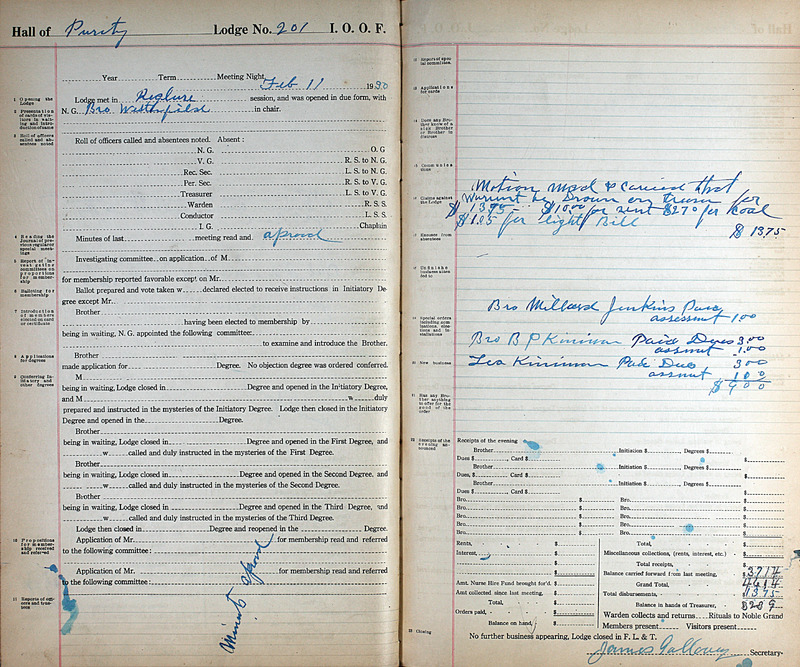 Hall of Purity Lodge No. 201 I. O. O. F.
Year Term Meeting Night Feb 11 1930
1 Opening the Lodge
Lodge met in Reglure session, and was opened in due form, with
2 Presentation of cards of visitors in waiting and introduction of same
N. G. Bro Westerfield in chair.
3 Roll of officers called and absentees noted
Roll of officers called and absentees noted. Absent:
N. G. O. G
V. G. R. S. to N. G.
Rec. Sec. L. S. to N. G.
Per. Sec. R. S. to V. G.
Treasurer L. S. to V. G.
Warden R. S. S.
Conductor L. S. S.
I. G. Chaplain
4 Reading the Journal of previous regular special meetings
Minutes of last meeting read and aproved
5 Report of investigating committee on propositions for membership
Investigating committee on application of M
for membership reported favorable except on Mr.
6 Balloting for membership
Ballot prepared and vote taken w declared elected to receive instructions in Initiatory De-
gree except Mr.
7 Introduction of members elected on card or certificate
Brother
having been elected to membership by
being in waiting, N. G. appointed the following committee:
to examine and introduce the Brother.
8 Applications for degrees
Brother
made application for Degree. No objection degree was ordered conferred.
9 Conferring Initiatory and other degrees
M
being in waiting, Lodge closed in Degree and opened in the Initiatory Degree,
and M w duly
prepared and instructed in the mysteries of the Initiatory Degree. Lodge then closed in the Initiatory
Degree and opened in the Degree.
Brother
being in waiting, Lodge closed in Degree and opened in the First Degree, and
w called and duly instructed in the mysteries of the First Degree.
Brother
being in waiting, Lodge closed in Degree and opened in the Second Degree, and
w called and duly instructed in the mysteries of the Second Degree.
Brother
being in waiting, Lodge closed in Degree and opened in the Third Degree, and
w called and duly instructed in the mysteries of the Third Degree.
Lodge then closed in Degree and reopened in the Degree.
10 Propositions for membership received and referred
Application of Mr. for membership and referred
to the following committee:
Application of Mr. for membership and referred
to the following committee:
11 Reports of officers and trustees
Minets aproved
12 Reports of special committees.
13 Applications for cards
14 Does any Brother know of a sick Brother or Brother in distress
15 Communications
Motion Mad & Caried that
16 Claims against the Lodge
Warrent be Drawn on treasur for
$13.75 $10.00 for rent $2.70 for Coal
$1.05 for light Bill
$13.75
17 Excuses from absentees
Unfinished business attended to
Bro Millard Jenkins Paid
assesment 1.00
19 Special orders including nominations, elections and installations
Bro B P Kinimon Paid Dues 3.00
assmut 1.00
20 New business
Lea Kinimon Paid Dues 3.00
assmut 1.00
$9.00
21 Has any Brother anything to offer for the good of the order
22 Receipts of the evening announced
Receipts of the evening
Brother Initiation $ Degrees $
Dues $ Card $ $
Brother Initiation $ Degrees $
Dues, $ Card $ $
Brother Initiation $ Degrees $
Dues $ Card $ $
Bro. $ Bro. $
Bro. $ Bro. $
Bro. $ Bro. $
Bro. $ Bro. $
Rents, $ Total, $
Interest, $ Miscellaneous collections, (rents, interest, etc.) $
$ Total receipts, $
Balance carried forward from last meeting, $ 3714
Amt. Nurse Hire Fund brought for'd. $ Grand Total, $ 4614
Amt collected since last meeting, $ Total disbursements, $ 1375
Total, $ Balance in hands of Treasurer, $ 3239
Orders paid, $ Warden collects and returns Rituals to Noble Grand
Balance on hand, $ Members present Visitors present
23 Closing
No further business appearing, Lodge closed in F. L. & T.
James Gallovey Secretary.